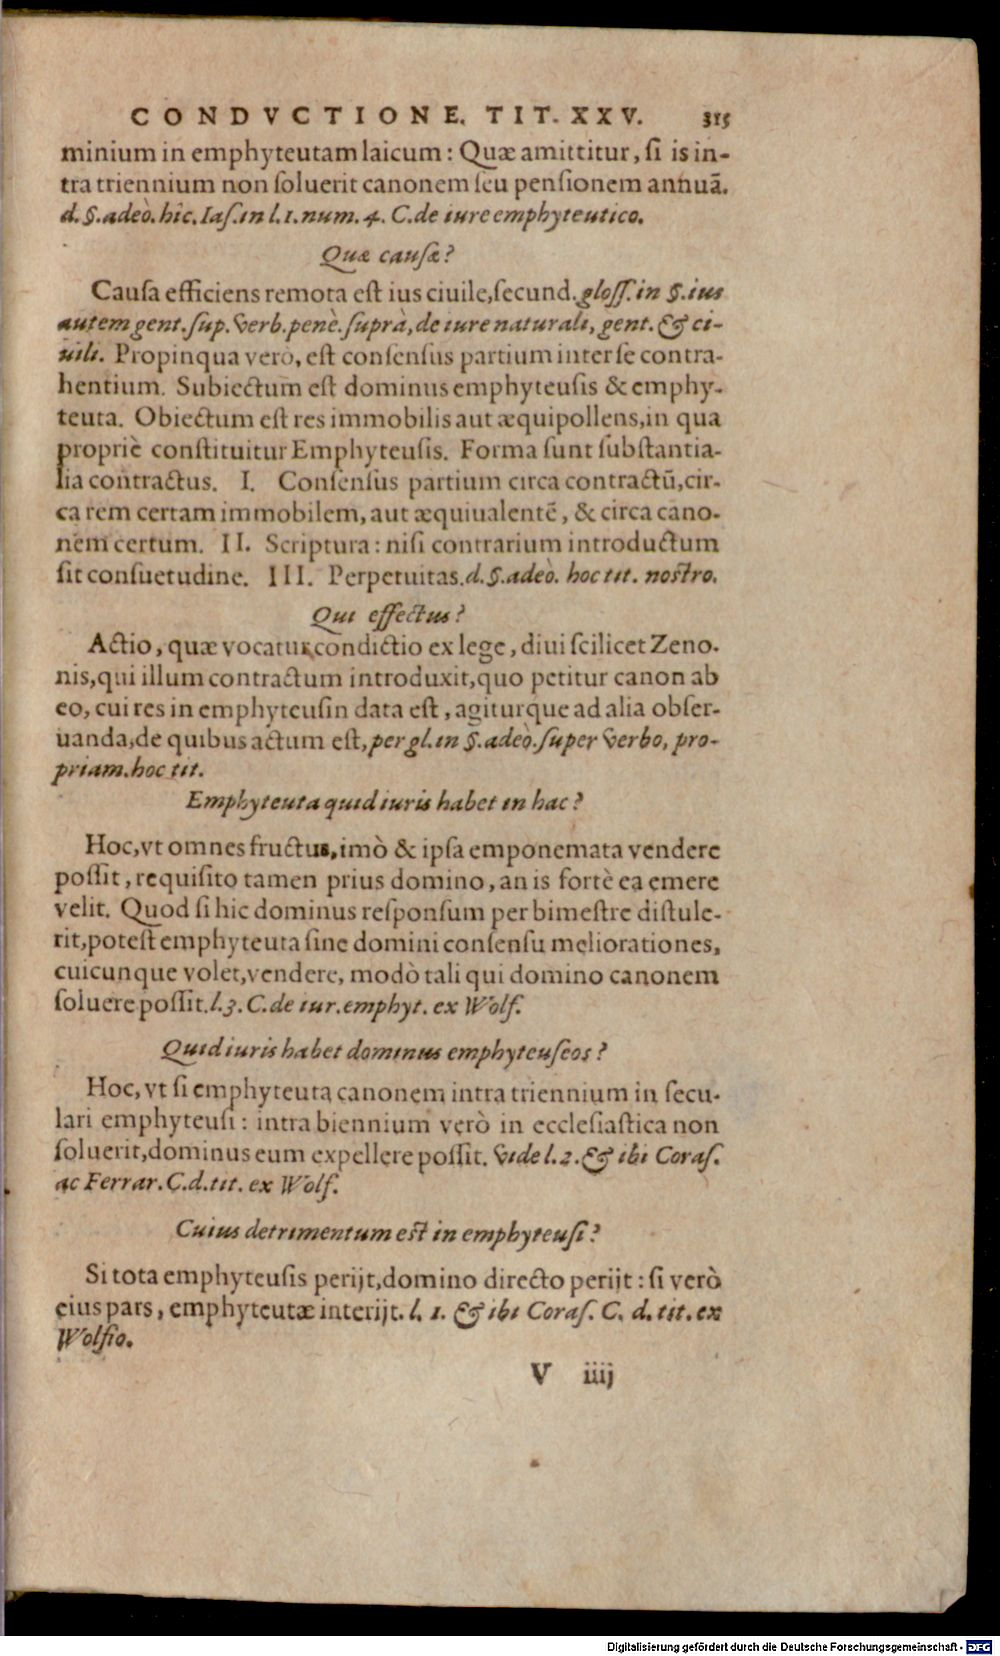 CONDVCTIONE. TIT. XXV. 315
minium in emphyteutam laicum: Quæ amittitur, si is in-
tra triennium non soluerit canonem seu pensionem annuã.
d. §. adeò. hic. Ias. in l. 1. num. 4. C. de iure emphyteutico.
Quæ causæ?
Causa efficiens remota est ius ciuile, secund. gloss. in §. ius
autem gent. sup. verb. penè. suprà, de iure naturali, gent. & ci-
uili. Propinqua verò, est consensus partium inter se contra-
hentium. Subiectum est dominus emphyteusis & emphy-
teuta. Obiectum est res immobilis aut æquipollens, in qua
propriè constituitur Emphyteusis. Forma sunt substantia-
lia contractus. I. Consensus partium circa contractũ, cir-
ca rem certam immobilem, aut æquiualentẽ, & circa cano-
nem certum. II. Scriptura: nisi contrarium introductum
sit consuetudine. III. Perpetuitas. d. §. adeò. hoc tit. nostro.
Qui effectus?
Actio, quæ vocatur condictio ex lege, diui scilicet Zeno-
nis, qui illum contractum introduxit, quo petitur canon ab
eo, cui res in emphyteusin data est, agiturque ad alia obser-
uanda, de quibus actum est, per gl. in §. adeò. super verbo, pro-
priam. hoc tit.
Emphyteuta quid iuris habet in hac?
Hoc, vt omnes fructus, imò & ipsa emponemata vendere
possit, requisito tamen prius domino, an is fortè ea emere
velit. Quod si hic dominus responsum per bimestre distule-
rit, potest emphyteuta sine domini consensu meliorationes,
cuicunque volet, vendere, modò tali qui domino canonem
soluere possit. l. 3. C. de iur. emphyt. ex Wolf.
Quid iuris habet dominus emphyteuseos?
Hoc, vt si emphyteuta canonem intra triennium in secu-
lari emphyteusi: intra biennium verò in ecclesiastica non
soluerit, dominus eum expellere possit. vide l. 2. & ibi Coras.
ac Ferrar. C. d. tit. ex Wolf.
Cuius detrimentum est in emphyteusi?
Si tota emphyteusis perijt, domino directo perijt: si verò
eius pars, emphyteutæ interijt. l. 1. & ibi Coras. C. d. tit. ex
Wolfio.
V iiij
Digitalisierung gefördert durch die Deutsche Forschungsgemeinschaft - DFG